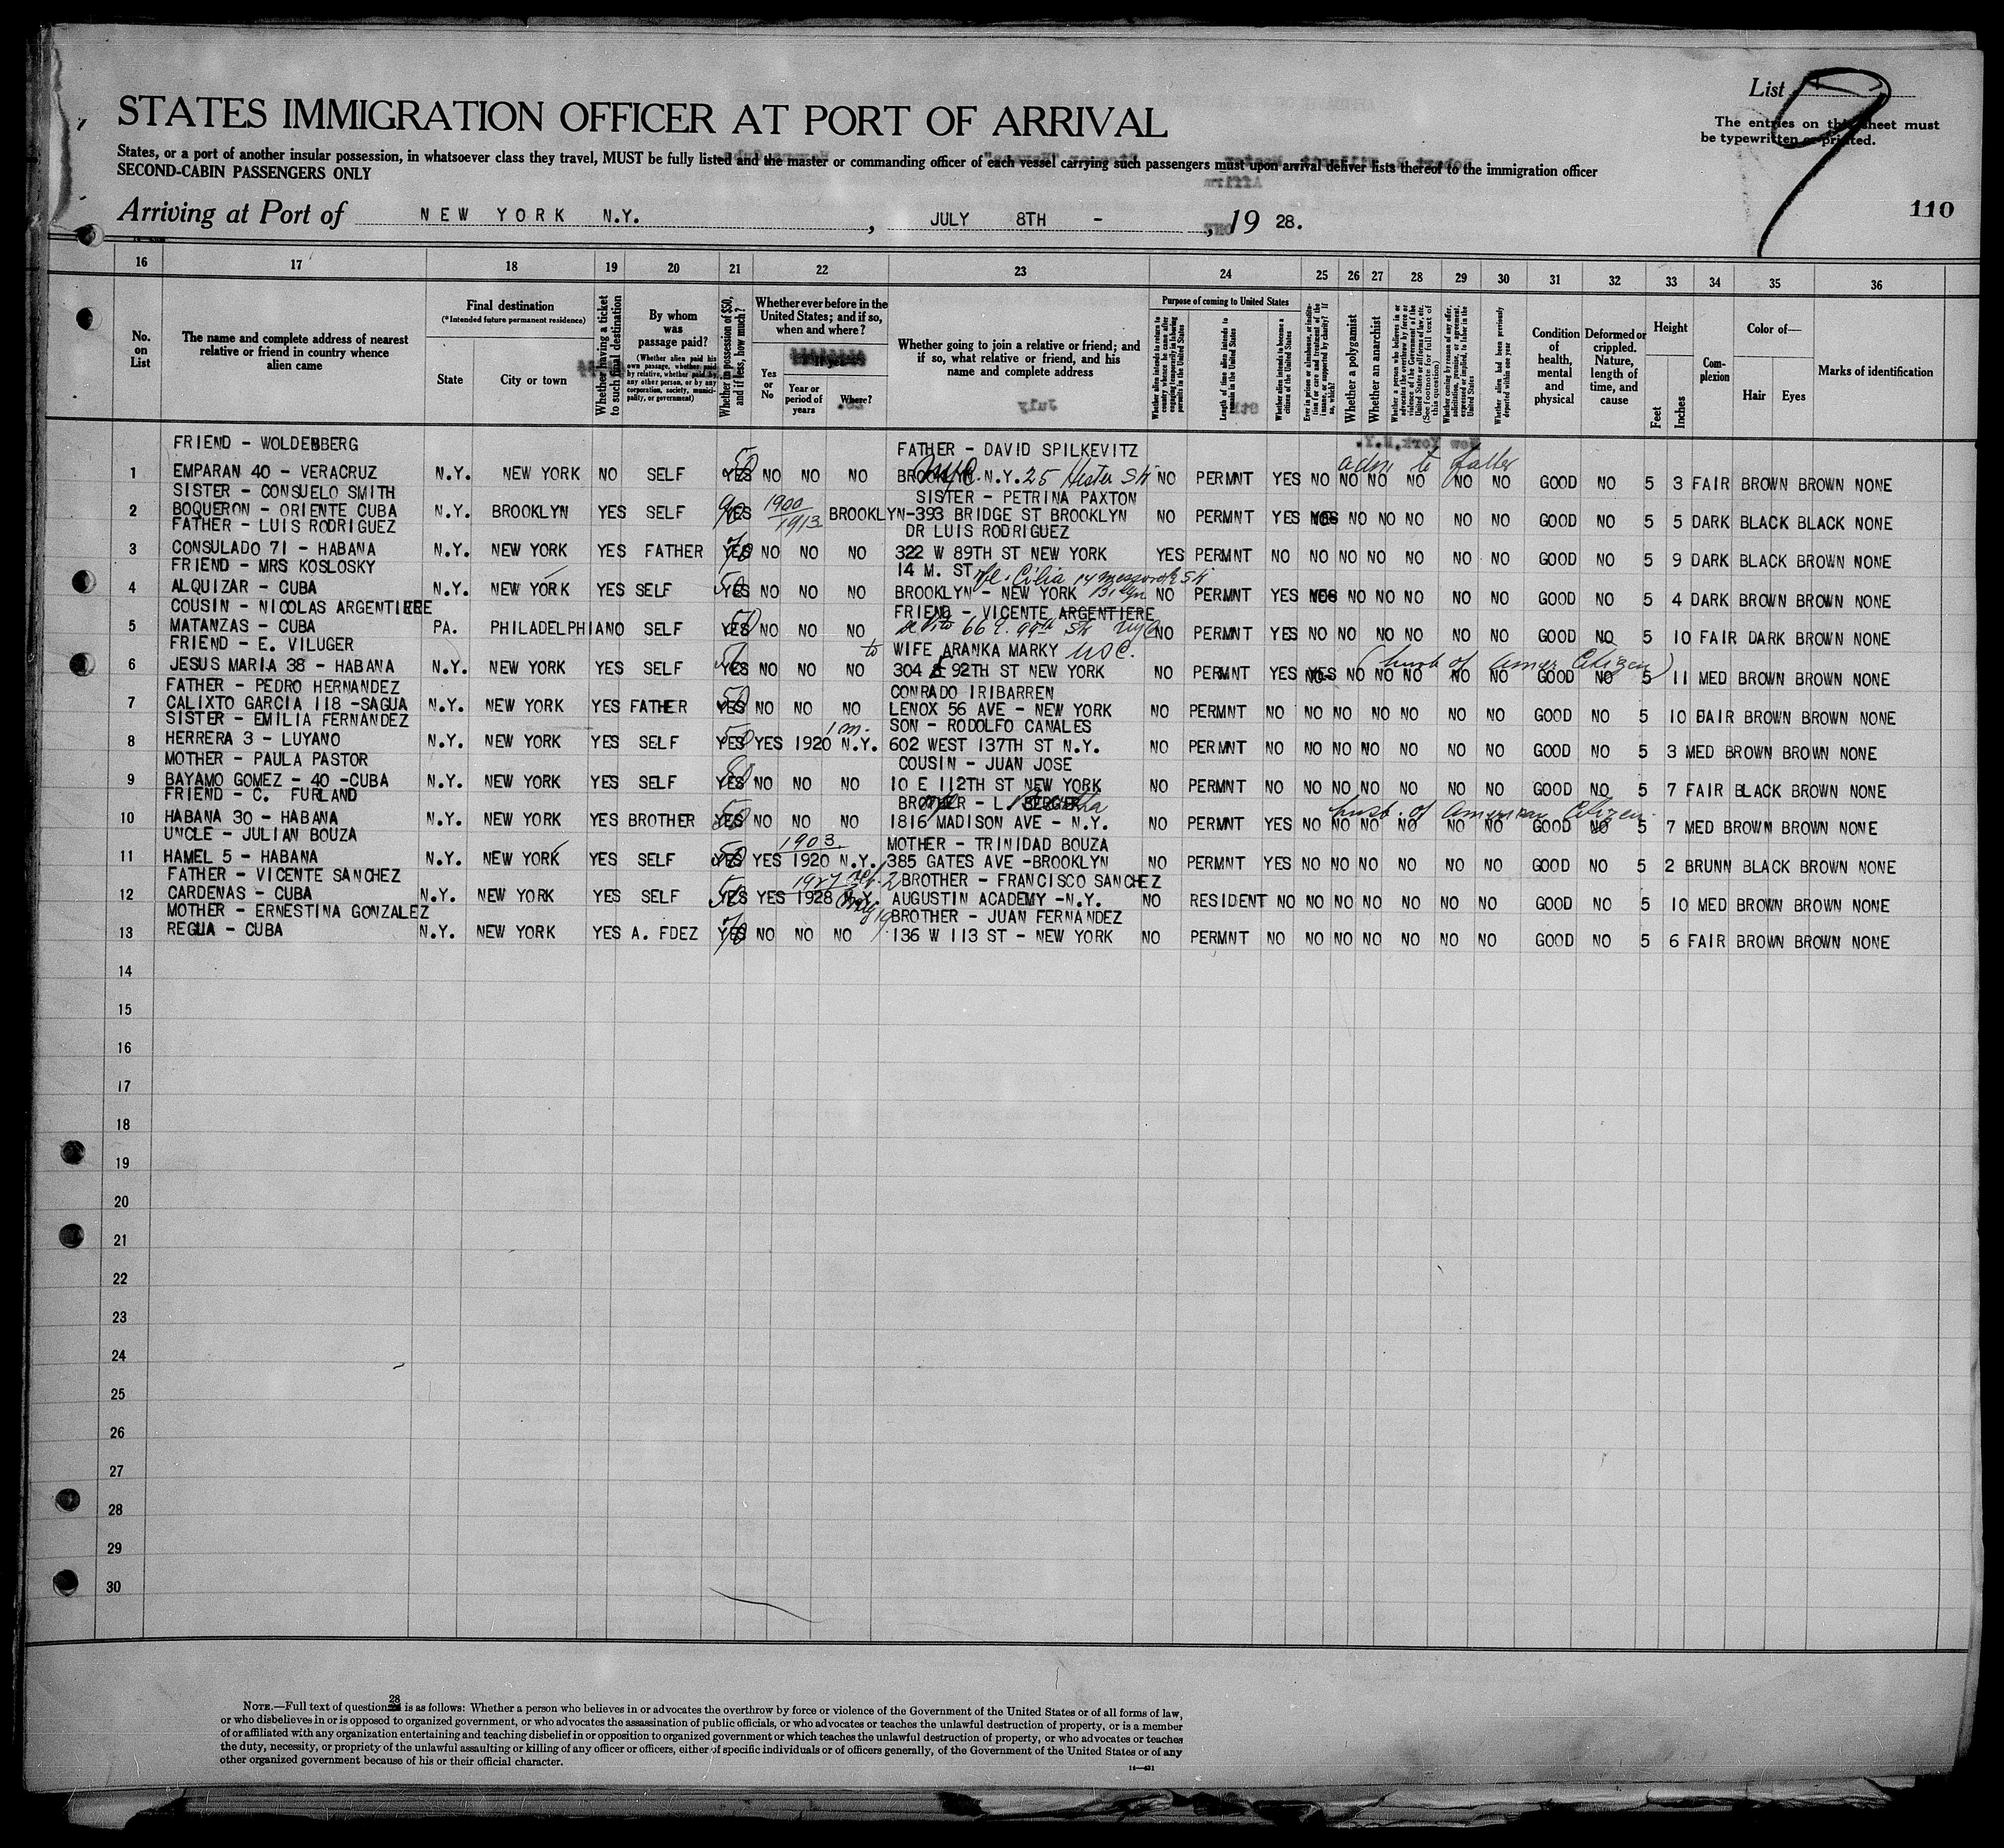 List
The entries on this sheet must
be typewritten or printed.
STATES IMMIGRATION OFFICER AT PORT OF ARRIVAL
States, or a port of another insular possession, in whatsoever class they travel, MUST be fully listed and the master or commanding officer of each vessel carrying such passengers must upon arrival deliver lists thereof to the immigration officer
SECOND-CABIN PASSENGERS ONLY
Arriving at Port of NEW YORK N.Y. , JULY 8TH - , 19 28.
110
16 17 18 19 20 21 22 23 24 25 26 27 28 29 30 31 32 33 34 35 36
No. on List
The name and complete address of nearest relative or friend in country whence alien came
Final destination
(*Intended future permanent residence)
State City or town
Whether having a ticket to such final destination
By whom was passage paid?
(Whether alien paid his own passage, whether paid by relative, whether paid by any other person, or by any corporation, society, municipality, or government)
Whether in possession of $50, and if less, how much?
Whether ever before in the United States; and if so, when and where?
Yes or No
Year or period of years
Where?
Whether going to join a relative or friend; and if so, what relative or friend, and his name and complete address
Purpose of coming to United States
Whether alien intends to return to country whence he came after engaging temporarily in laboring pursuits in the United States
Length of time alien intends to remain in the United States
Whether alien intends to become a citizen of the United States
Ever in prison or almshouse, or institution for care and treatment of the insane, or supported by charity? If so, which?
Whether a polygamist
Whether an anarchist
Whether a person who believes in or advocates the overthrow by force or violence of the Government of the United States or all forms of law, etc. (See footnote for full text of this question)
Whether coming by reason of any offer, solicitation, promise, or agreement, expressed or implied, to labor in the United States
Whether alien had been previously deported within one year
Condition of health, mental and physical
Deformed or crippled. Nature, length of time, and cause
Height
Feet Inches
Complexion
Color of—
Hair Eyes
Marks of identification
FRIEND - WOLDENBERG FATHER - DAVID SPILKEVITZ adm to father
1 EMPARAN 40 - VERACRUZ N.Y. NEW YORK NO SELF YES 50 NO NO NO BROOKLYN N.Y. 25 Hester St NO PERMNT YES NO NO NO NO NO NO GOOD NO 5 3 FAIR BROWN BROWN NONE
SISTER - CONSUELO SMITH 1900 SISTER - PETRINA PAXTON
2 BOQUERON - ORIENTE CUBA N.Y. BROOKLYN YES SELF YES 1913 BROOKLYN-393 BRIDGE ST BROOKLYN NO PERMNT YES NO NO NO NO NO GOOD NO 5 5 DARK BLACK BLACK NONE
FATHER - LUIS RODRIGUEZ DR LUIS RODRIGUEZ
3 CONSULADO 71 - HABANA N.Y. NEW YORK YES FATHER YES NO NO NO 322 W 89TH ST NEW YORK YES PERMNT NO NO NO NO NO NO NO GOOD NO 5 9 DARK BLACK BROWN NONE
FRIEND - MRS KOSLOSKY 14 M. ST
4 ALQUIZAR - CUBA N.Y. NEW YORK YES SELF YES 50 NO NO NO BROOKLYN - NEW YORK NO PERMNT YES NO NO NO NO NO GOOD NO 5 4 DARK BROWN BROWN NONE
COUSIN - NICOLAS ARGENTIERE FRIEND - VICENTE ARGENTIERE
5 MATANZAS - CUBA PA. PHILADELPHIA NO SELF YES 50 NO NO NO NO PERMNT YES NO NO NO NO NO NO GOOD NO 5 10 FAIR DARK BROWN NONE
FRIEND - E. VILUGER to WIFE ARANKA MARKY USC. (husb of Amer Citizen)
6 JESUS MARIA 38 - HABANA N.Y. NEW YORK YES SELF YES NO NO NO 304 E 92TH ST NEW YORK NO PERMNT YES NO NO NO NO NO GOOD NO 5 11 MED BROWN BROWN NONE
FATHER - PEDRO HERNANDEZ CONRADO IRIBARREN
7 CALIXTO GARCIA 118 -SAGUA N.Y. NEW YORK YES FATHER YES 50 NO NO NO LENOX 56 AVE - NEW YORK NO PERMNT NO NO NO NO NO NO NO GOOD NO 5 10 FAIR BROWN BROWN NONE
SISTER - EMILIA FERNANDEZ 1 m. SON - RODOLFO CANALES
8 HERRERA 3 - LUYANO N.Y. NEW YORK YES SELF YES 50 YES 1920 N.Y. 602 WEST 137TH ST N.Y. NO PERMNT NO NO NO NO NO NO NO GOOD NO 5 3 MED BROWN BROWN NONE
MOTHER - PAULA PASTOR COUSIN - JUAN JOSE
9 BAYAMO GOMEZ - 40 -CUBA N.Y. NEW YORK YES SELF YES NO NO NO 10 E 112TH ST NEW YORK NO PERMNT NO NO NO NO NO NO NO GOOD NO 5 7 FAIR BLACK BROWN NONE
FRIEND - C. FURLAND BROTHER - L. BERGER husb. of American Citizen
10 HABANA 30 - HABANA N.Y. NEW YORK YES BROTHER YES 50 NO NO NO 1816 MADISON AVE - N.Y. NO PERMNT YES NO NO NO NO NO NO GOOD NO 5 7 MED BROWN BROWN NONE
UNCLE - JULIAN BOUZA 1903 MOTHER - TRINIDAD BOUZA
11 HAMEL 5 - HABANA N.Y. NEW YORK YES SELF YES 50 YES 1920 N.Y. 385 GATES AVE -BROOKLYN NO PERMNT YES NO NO NO NO NO NO GOOD NO 5 2 BRUNN BLACK BROWN NONE
FATHER - VICENTE SANCHEZ 1927 BROTHER - FRANCISCO SANCHEZ
12 CARDENAS - CUBA N.Y. NEW YORK YES SELF YES YES 1928 N.Y. AUGUSTIN ACADEMY -N.Y. NO RESIDENT NO NO NO NO NO NO NO GOOD NO 5 10 MED BROWN BROWN NONE
MOTHER - ERNESTINA GONZALEZ BROTHER - JUAN FERNANDEZ
13 REGLA - CUBA N.Y. NEW YORK YES A. FDEZ YES NO NO NO 136 W 113 ST - NEW YORK NO PERMNT NO NO NO NO NO NO NO GOOD NO 5 6 FAIR BROWN BROWN NONE
14
15
16
17
18
19
20
21
22
23
24
25
26
27
28
29
30
NOTE.—Full text of question 28 is as follows: Whether a person who believes in or advocates the overthrow by force or violence of the Government of the United States or of all forms of law,
or who disbelieves in or is opposed to organized government, or who advocates the assassination of public officials, or who advocates or teaches the unlawful destruction of property, or is a member
of or affiliated with any organization entertaining and teaching disbelief in or opposition to organized government or which teaches the unlawful destruction of property, or who advocates or teaches
the duty, necessity, or propriety of the unlawful assaulting or killing of any officer or officers, either of specific individuals or of officers generally, of the Government of the United States or of any
other organized government because of his or their official character.
14—431